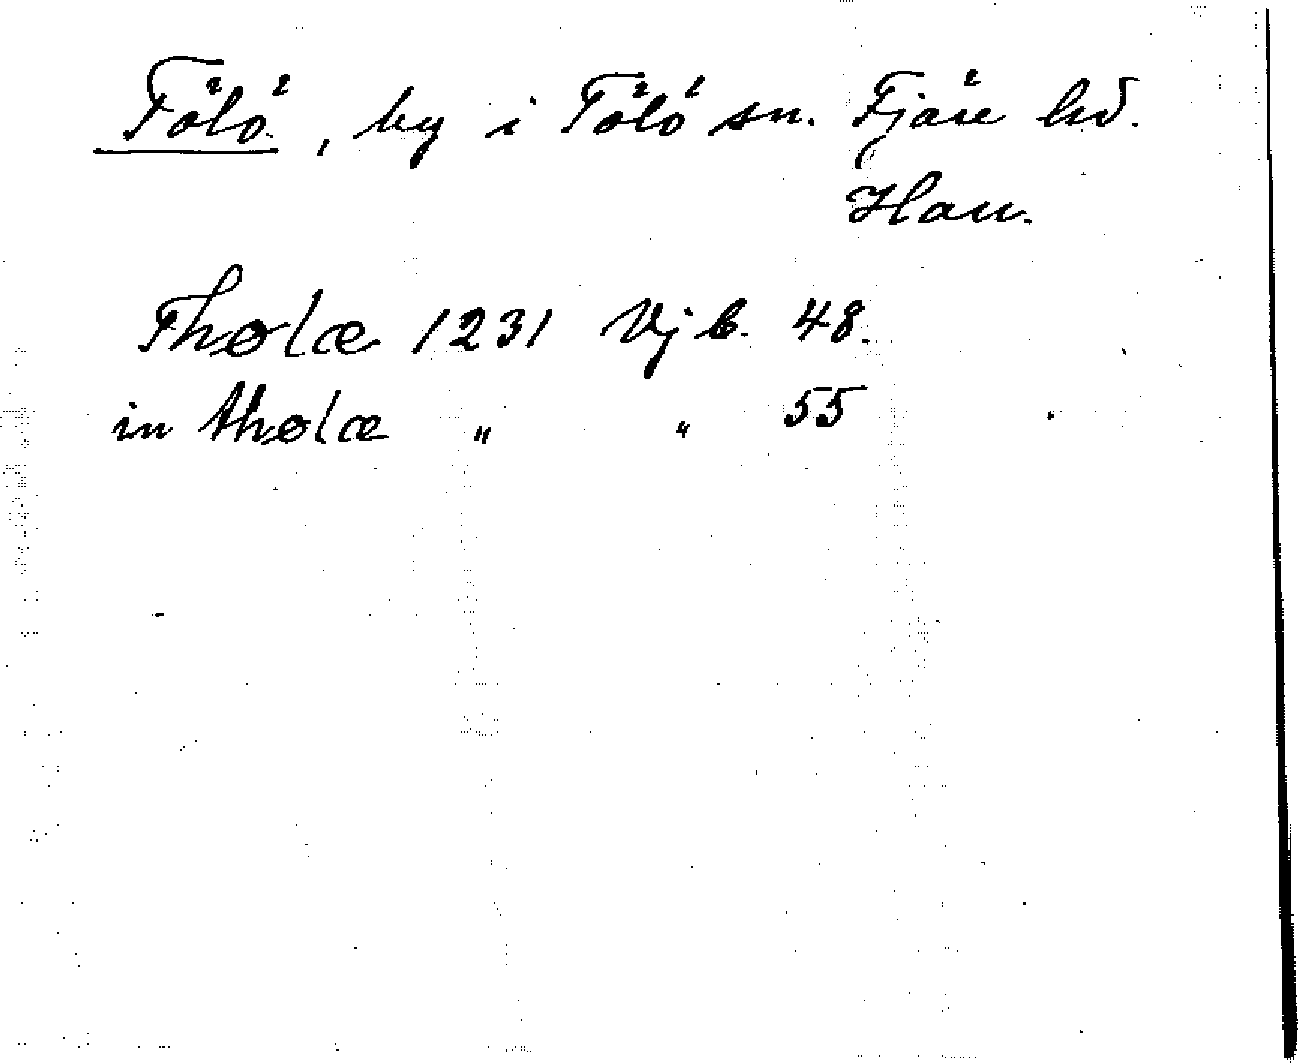 Tölö, by i Tölö sn. Fjäre hd.
Hall.
Tholæ 1231 Vj b. 48.
in tholæ " " 55